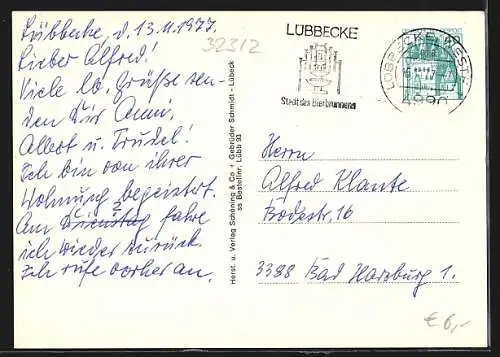 Lübbecke, d. 13.11.1977.
Lieber Alfred!
Viele lb. Grüße sen-
den Dir Anni,
Albert u. Trudel!
Ich bin von ihrer
Wohnung begeistert.
Am Dienstag fahre
ich wieder zurück.
Ich rufe vorher an.
32312
Herst. u. Verlag Schöning & Co + Gebrüder Schmidt - Lübeck
Bestellnr. Lübb 93
LÜBBECKE
Stadt des Bierbrunnens
LÜBBECKE WESTF
4990
Herrn
Alfred Klante
Bodestr. 16
3388 Bad Harzburg 1.
€ 6,-